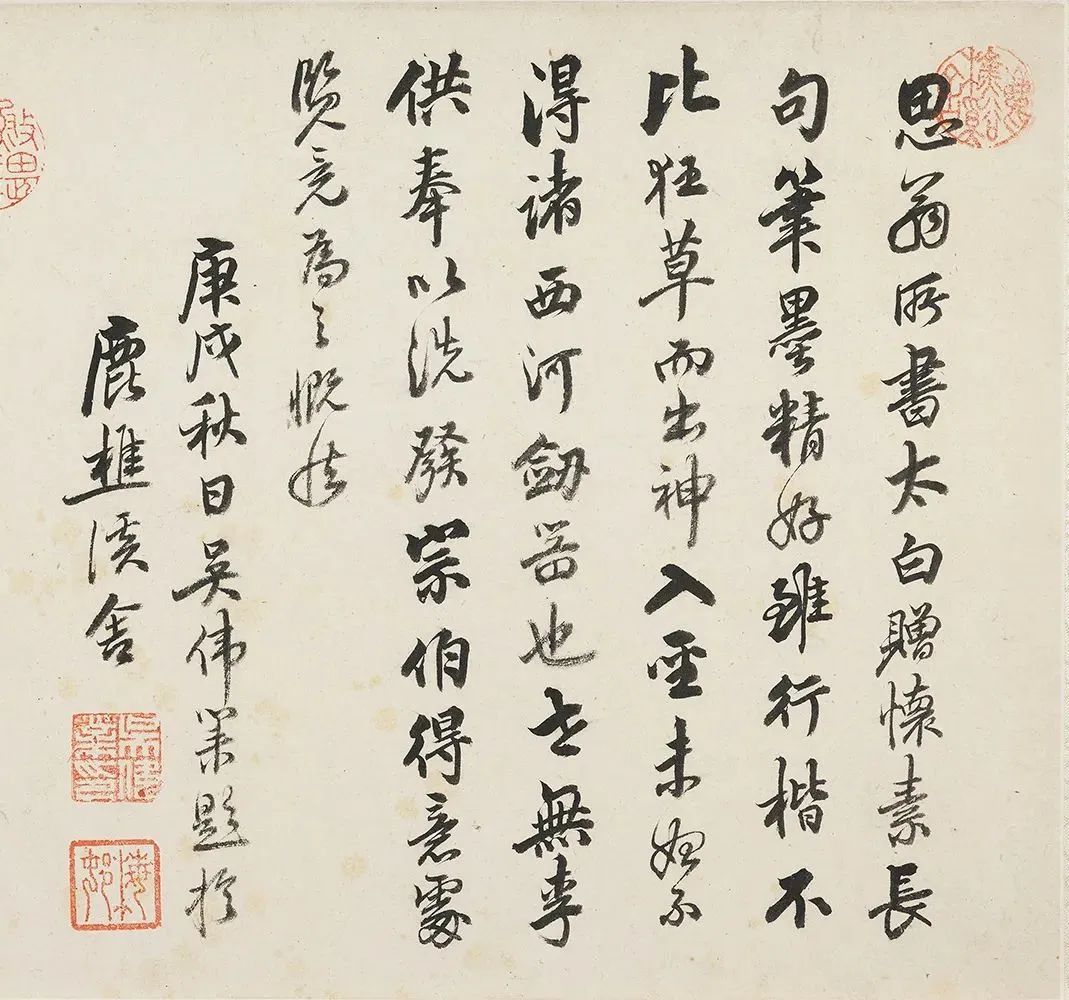 思翁所書太白贈懷素長
句筆墨精好雖行楷不
比狂草而出神入聖未始不
得諸西河劒器也世無李
供奉以洗發宗伯得意處
覽竟為之慨然
庚戌秋日吳偉業題於
鹿樵溪舍
吳偉業印
梅邨